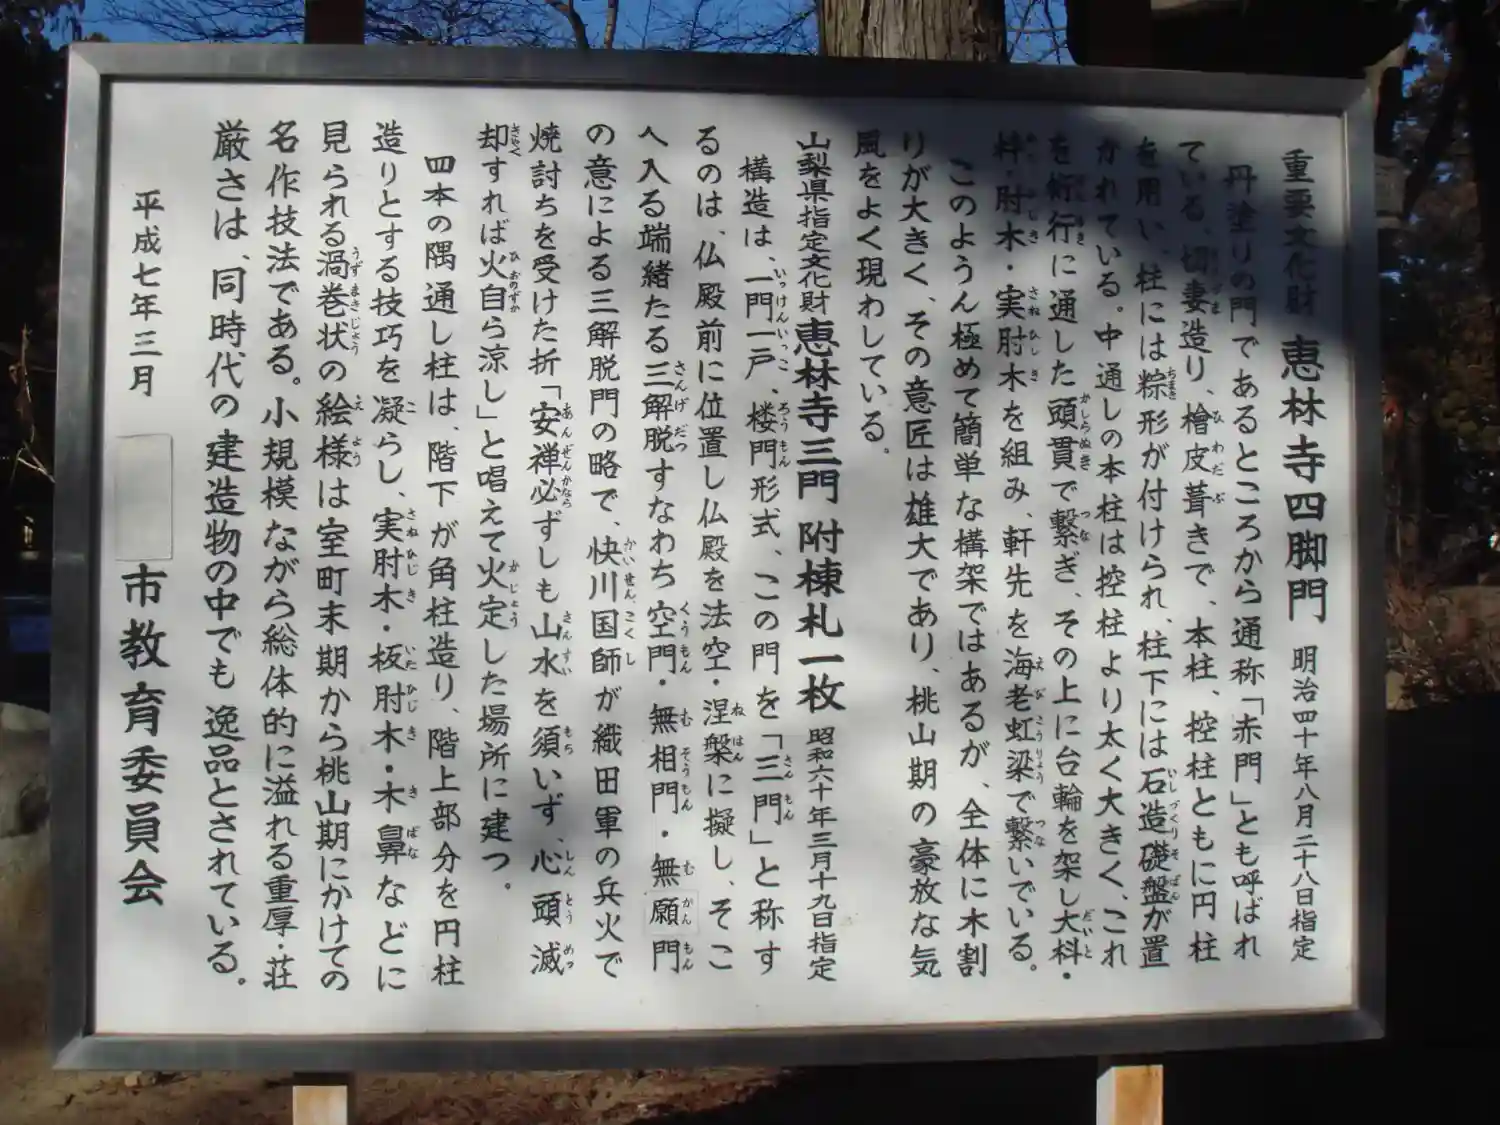 重要文化財 恵林寺四脚門 明治四十年八月二十八日指定
丹塗りの門であるところから通称「赤門」とも呼ばれ
ている。切妻造り、檜皮葺きで、本柱、控柱ともに円柱
を用い、柱には粽形が付けられ、柱下には石造礎盤が置
かれている。中通しの本柱は控柱より太く大きく、これ
を桁行に通した頭貫で繋ぎ、その上に台輪を架し大枓・
枓・肘木・実肘木を組み、軒先を海老虹梁で繋いでいる。
このようん極めて簡単な構架ではあるが、全体に木割
りが大きく、その意匠は雄大であり、桃山期の豪放な気
風をよく現わしている。
山梨県指定文化財 恵林寺三門 附棟札一枚 昭和六十年三月十九日指定
構造は、一門一戸、楼門形式、この門を「三門」と称す
るのは、仏殿前に位置し仏殿を法空・涅槃に擬し、そこ
へ入る端緒たる三解脱すなわち空門・無相門・無願門
の意による三解脱門の略で、快川国師が織田軍の兵火で
焼討ちを受けた折「安禅必ずしも山水を須いず、心頭滅
却すれば火自ら涼し」と唱えて火定した場所に建つ。
四本の隅通し柱は、階下が角柱造り、階上部分を円柱
造りとする技巧を凝らし、実肘木・板肘木・木鼻などに
見られる渦巻状の絵様は室町末期から桃山期にかけての
名作技法である。小規模ながら総体的に溢れる重厚・荘
厳さは、同時代の建造物の中でも逸品とされている。
平成七年三月 市教育委員会